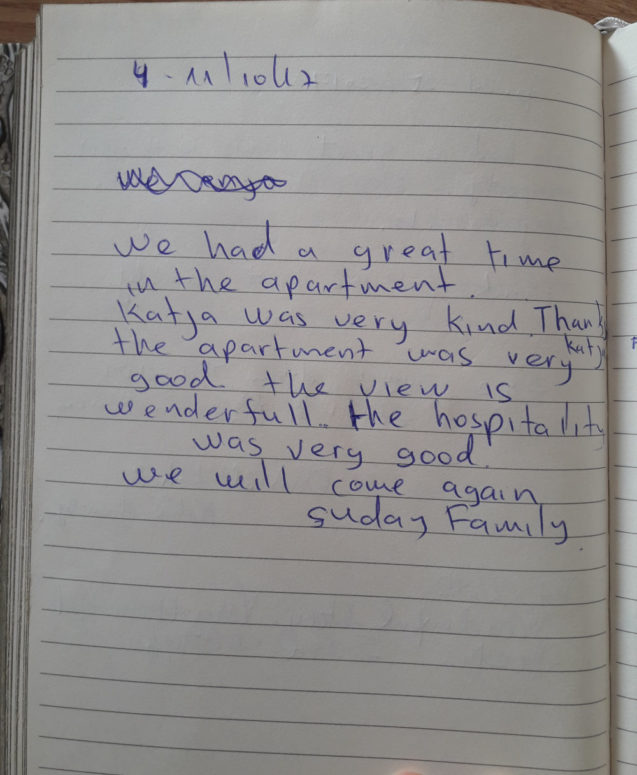 4 - 11/10/17
We had a great time
in the apartment.
Katja was very kind. Thank
Katja
the apartment was very
good. the view is
wenderfull.. the hospitality
was very good.
we will come again
suday Family.